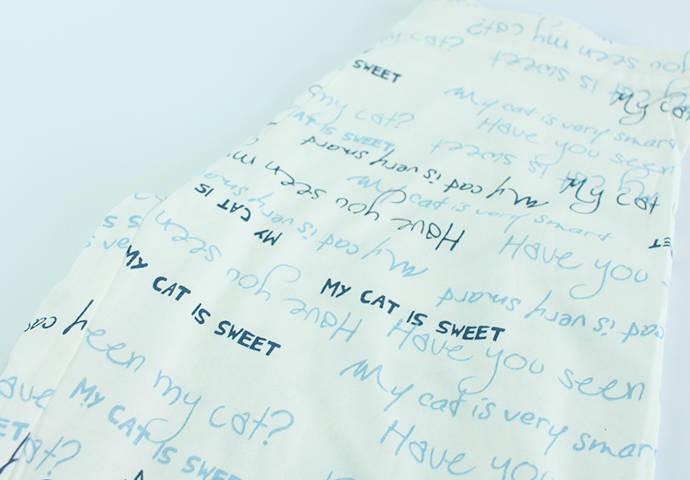 you seen my cat?
my cat?
cat is sweet
SWEET
My cat
my cat?
My cat is very smart
CAT IS SWEET
Have you seen
cat is sweet
My cat is very smard
My cat
Have you seen m
My cat is very smart
MY CAT IS
My cat is very smard
Have you
Have you seen
MY CAT IS SWEET
MY CAT IS SWEET
cat is very smard
Have you seen
een my cat?
My cat is very smar
ave
MY CAT IS SWEE
Have you
ET
cat?